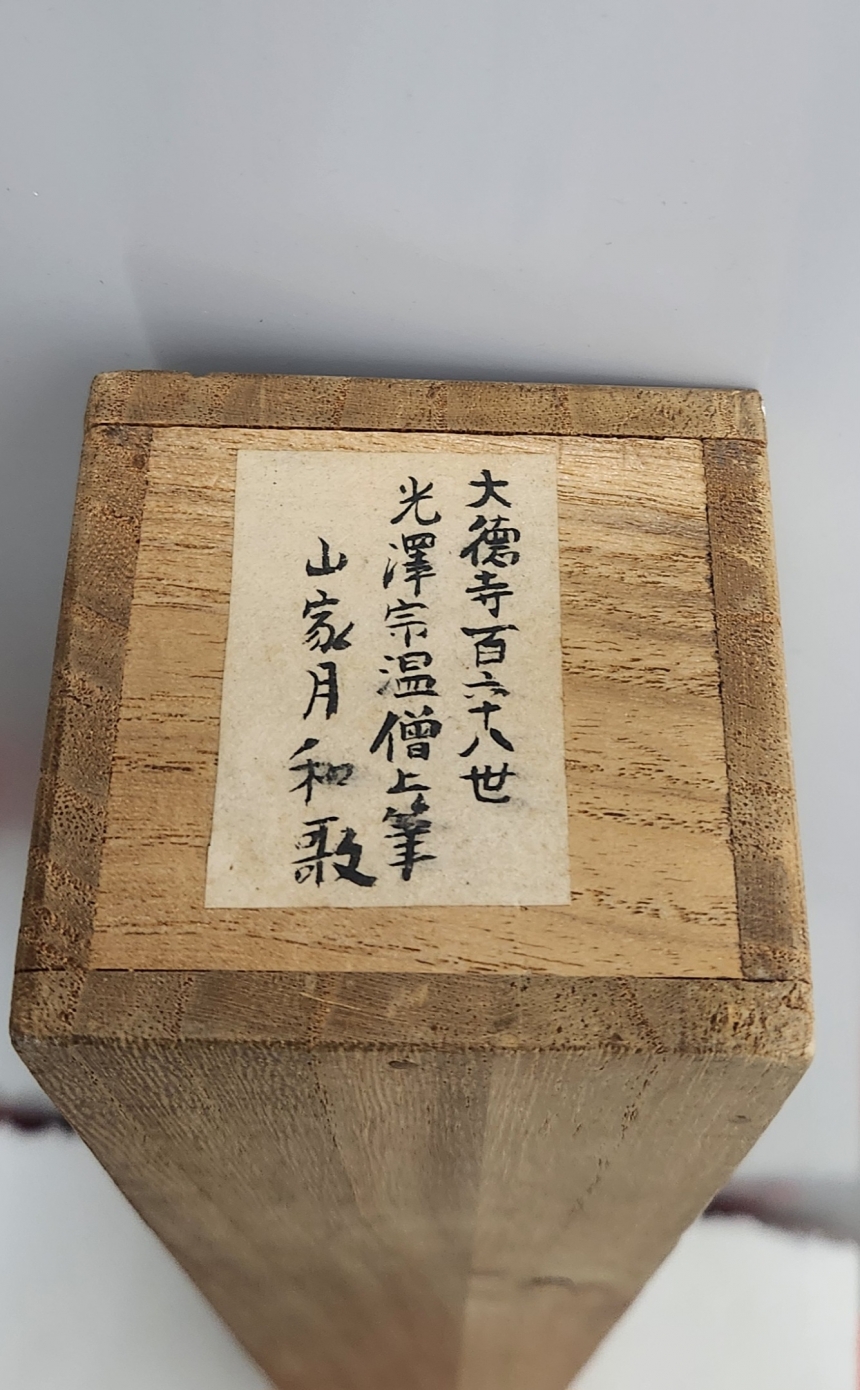 大德寺百六十八世
光澤宗温僧上筆
山家月和歌